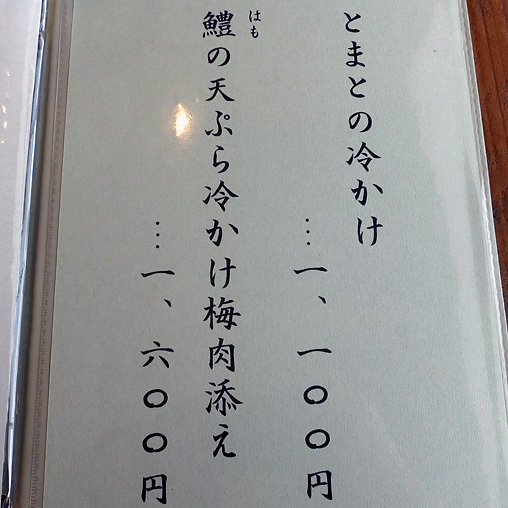 とまとの冷かけ
…一、一〇〇円
鱧の天ぷら冷かけ梅肉添え
はも
…一、六〇〇円